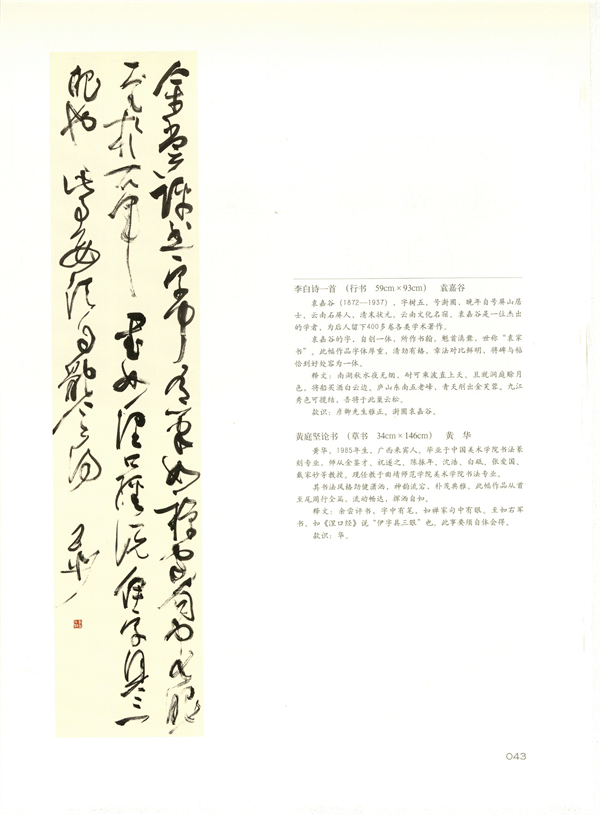 余尝评书字中有笔如禅家句中有眼
至如右军书如涅口经说伊字具三
眼也此事要须自体会得 华
李白诗一首 （行书 59cm×93cm） 袁嘉谷
袁嘉谷（1872—1937），字树五，号澍圃，晚年自号屏山居
士，云南石屏人，清末状元，云南文化名宿。袁嘉谷是一位杰出
的学者，为后人留下400多卷各类学术著作。
袁嘉谷的字，自创一体，所作书翰，魁首滇黉，世称“袁家
书”。此幅作品字体厚重，清劲有格，章法对比鲜明，将碑与帖
恰到好处容为一体。
释文：南湖秋水夜无烟，耐可乘波直上天，且就洞庭赊月
色，将船买酒白云边。庐山东南五老峰，青天削出金芙蓉。九江
秀色可揽结，吾将于此巢云松。
款识：彦卿先生雅正。澍圃袁嘉谷。
黄庭坚论书 （草书 34cm×146cm） 黄 华
黄华，1985年生，广西来宾人，毕业于中国美术学院书法篆
刻专业，师从金鉴才、祝遂之、陈振平、沈浩、白砥、张爱国、
戴家妙等教授。现任教于曲靖师范学院美术学院书法专业。
其书法风格劲健潇洒，神韵流宕，朴茂典雅。此幅作品从首
至尾周行全品，流动畅达，挥洒自如。
释文：余尝评书，字中有笔，如禅家句中有眼。至如右军
书，如《涅口经》说“伊字具三眼”也。此事要须自体会得。
款识：华。
043